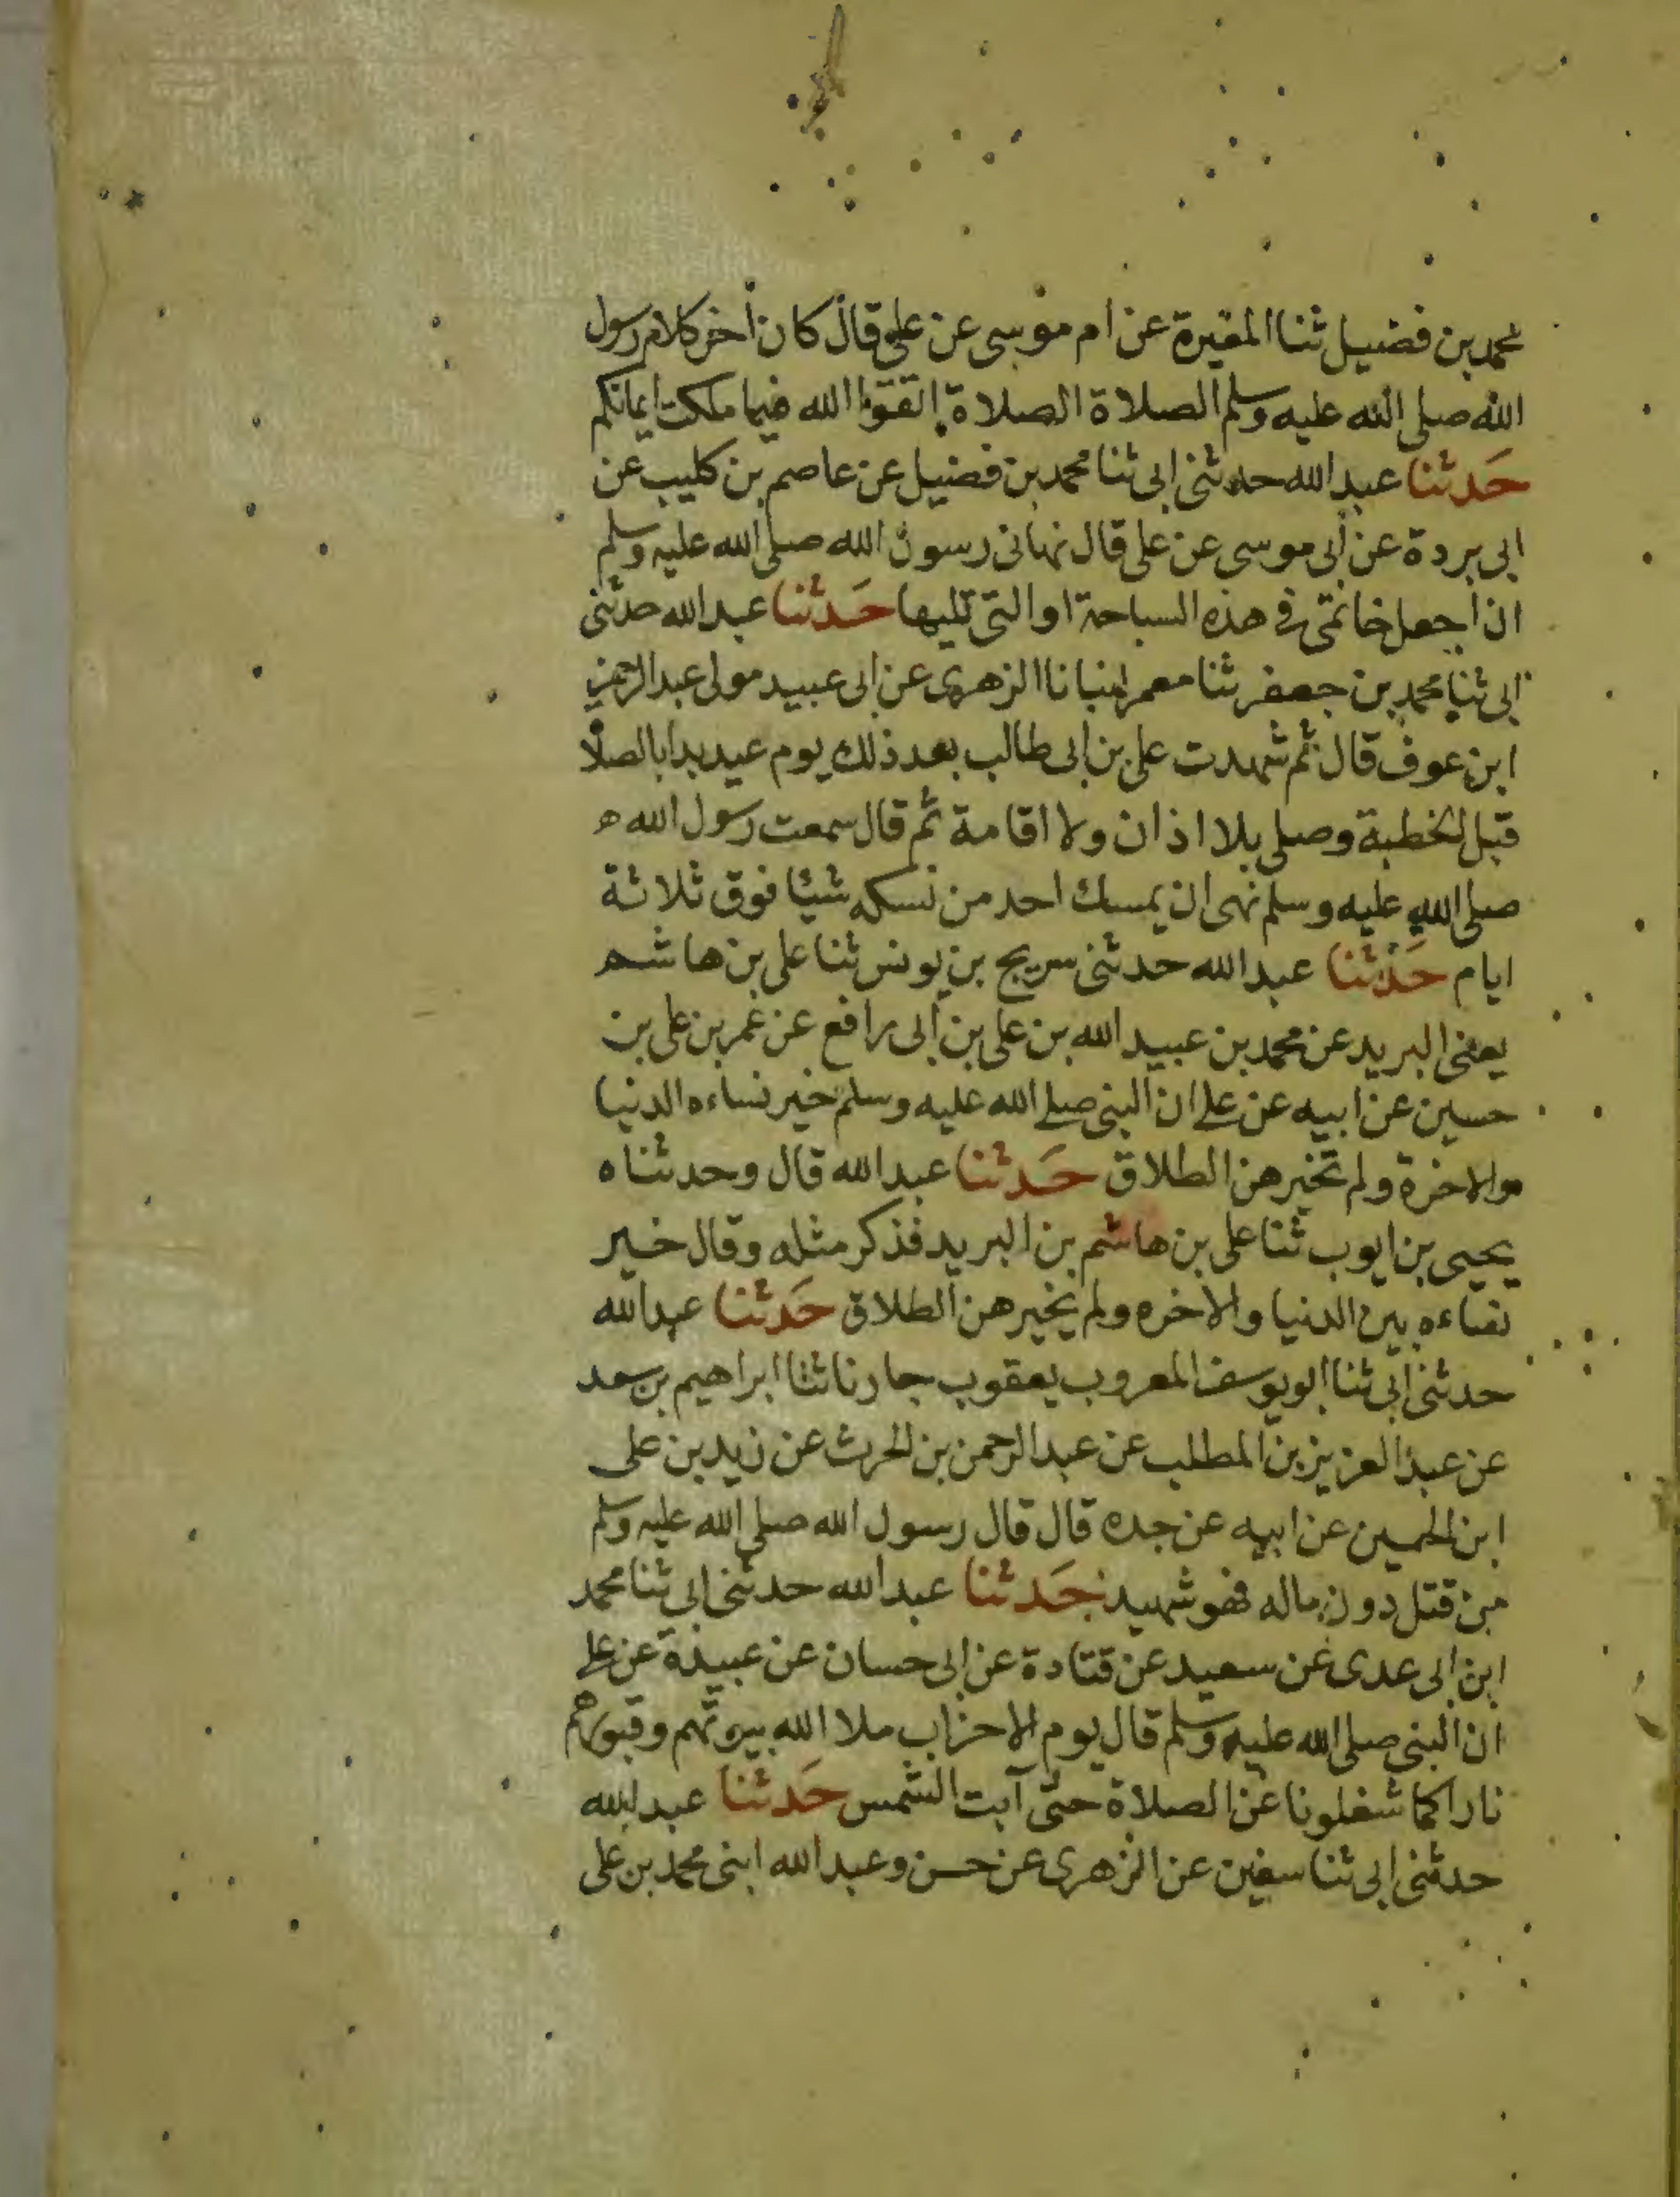 محمد بن فضيل ثنا المغيرة عن ام موسى عن علي قال كان أخر كلام رسول
الله صلى الله عليه وسلم الصلاة الصلاة اتقوا الله فيما ملكت ايمانكم
حَدثنا عبد الله حدثنى ابى ثنا محمد بن فضيل عن عاصم بن كليب عن
ابى بردة عن أبى موسى عن على قال نهانى رسول الله صلى الله عليه وسلم
ان اجعل خاتمى فى هذه السباحة او التى تليها حَدثنا عبد الله حدثنى
ابى ثنا محمد بن جعفر ثنا معمر انبانا الزهرى عن ابى عبيد مولى عبد الرحمن
ابن عوف قال ثم شهدت على بن ابى طالب بعد ذلك يوم عيد بدا بالصلا
قبل الخطبة وصلى بلا اذان ولا اقامة ثم قال سمعت رسول الله ه
صلى الله عليه وسلم نهى ان يمسك احد من نسكه شيئا فوق ثلاثة
ايام حَدثنا عبد الله حدثنى سريج بن يونس ثنا على بن هاشم
يعنى البريد عن محمد بن عبيد الله بن على بن أبى رافع عن عمر بن على بن
حسين عن ابيه عن على ان النبى صلى الله عليه وسلم خير نساءه الدنيا
والاخرة ولم تخيرهن الطلاق حَدثنا عبد الله قال وحدثناه
يحيى بن ايوب ثنا على بن هاشم بن البريد فذكر مثله وقال خير
نساءه بين الدنيا والاخره ولم يخيرهن الطلاق حَدثنا عبد الله
حدثنى ابى ثنا ابو يوسف المعروب يعقوب جارنا ثنا ابراهيم بن سعد
عن عبد العزيز بن المطلب عن عبد الرحمن بن الحرث عن زيد بن على
ابن الحسين عن ابيه عن جده قال قال رسول الله صلى الله عليه وسلم
من قتل دون ماله فهو شهيد حَدثنا عبد الله حدثنى ابى ثنا محمد
ابن ابى عدى عن سعيد عن قتادة عن ابى حسان عن عبيدة عن على
ان النبى صلى الله عليه وسلم قال يوم الاحزاب ملا الله بيوتهم وقبورهم
نارا كما شغلونا عن الصلاة حتى آبت الشمس حَدثنا عبد الله
حدثنى ابى ثنا سفين عن الزهرى عن حسن وعبد الله ابنى محمد بن على